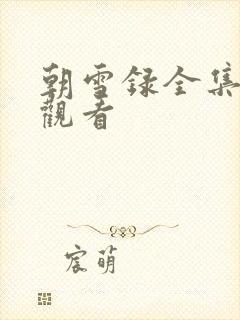 朝雪録全集
觀看
宸萌